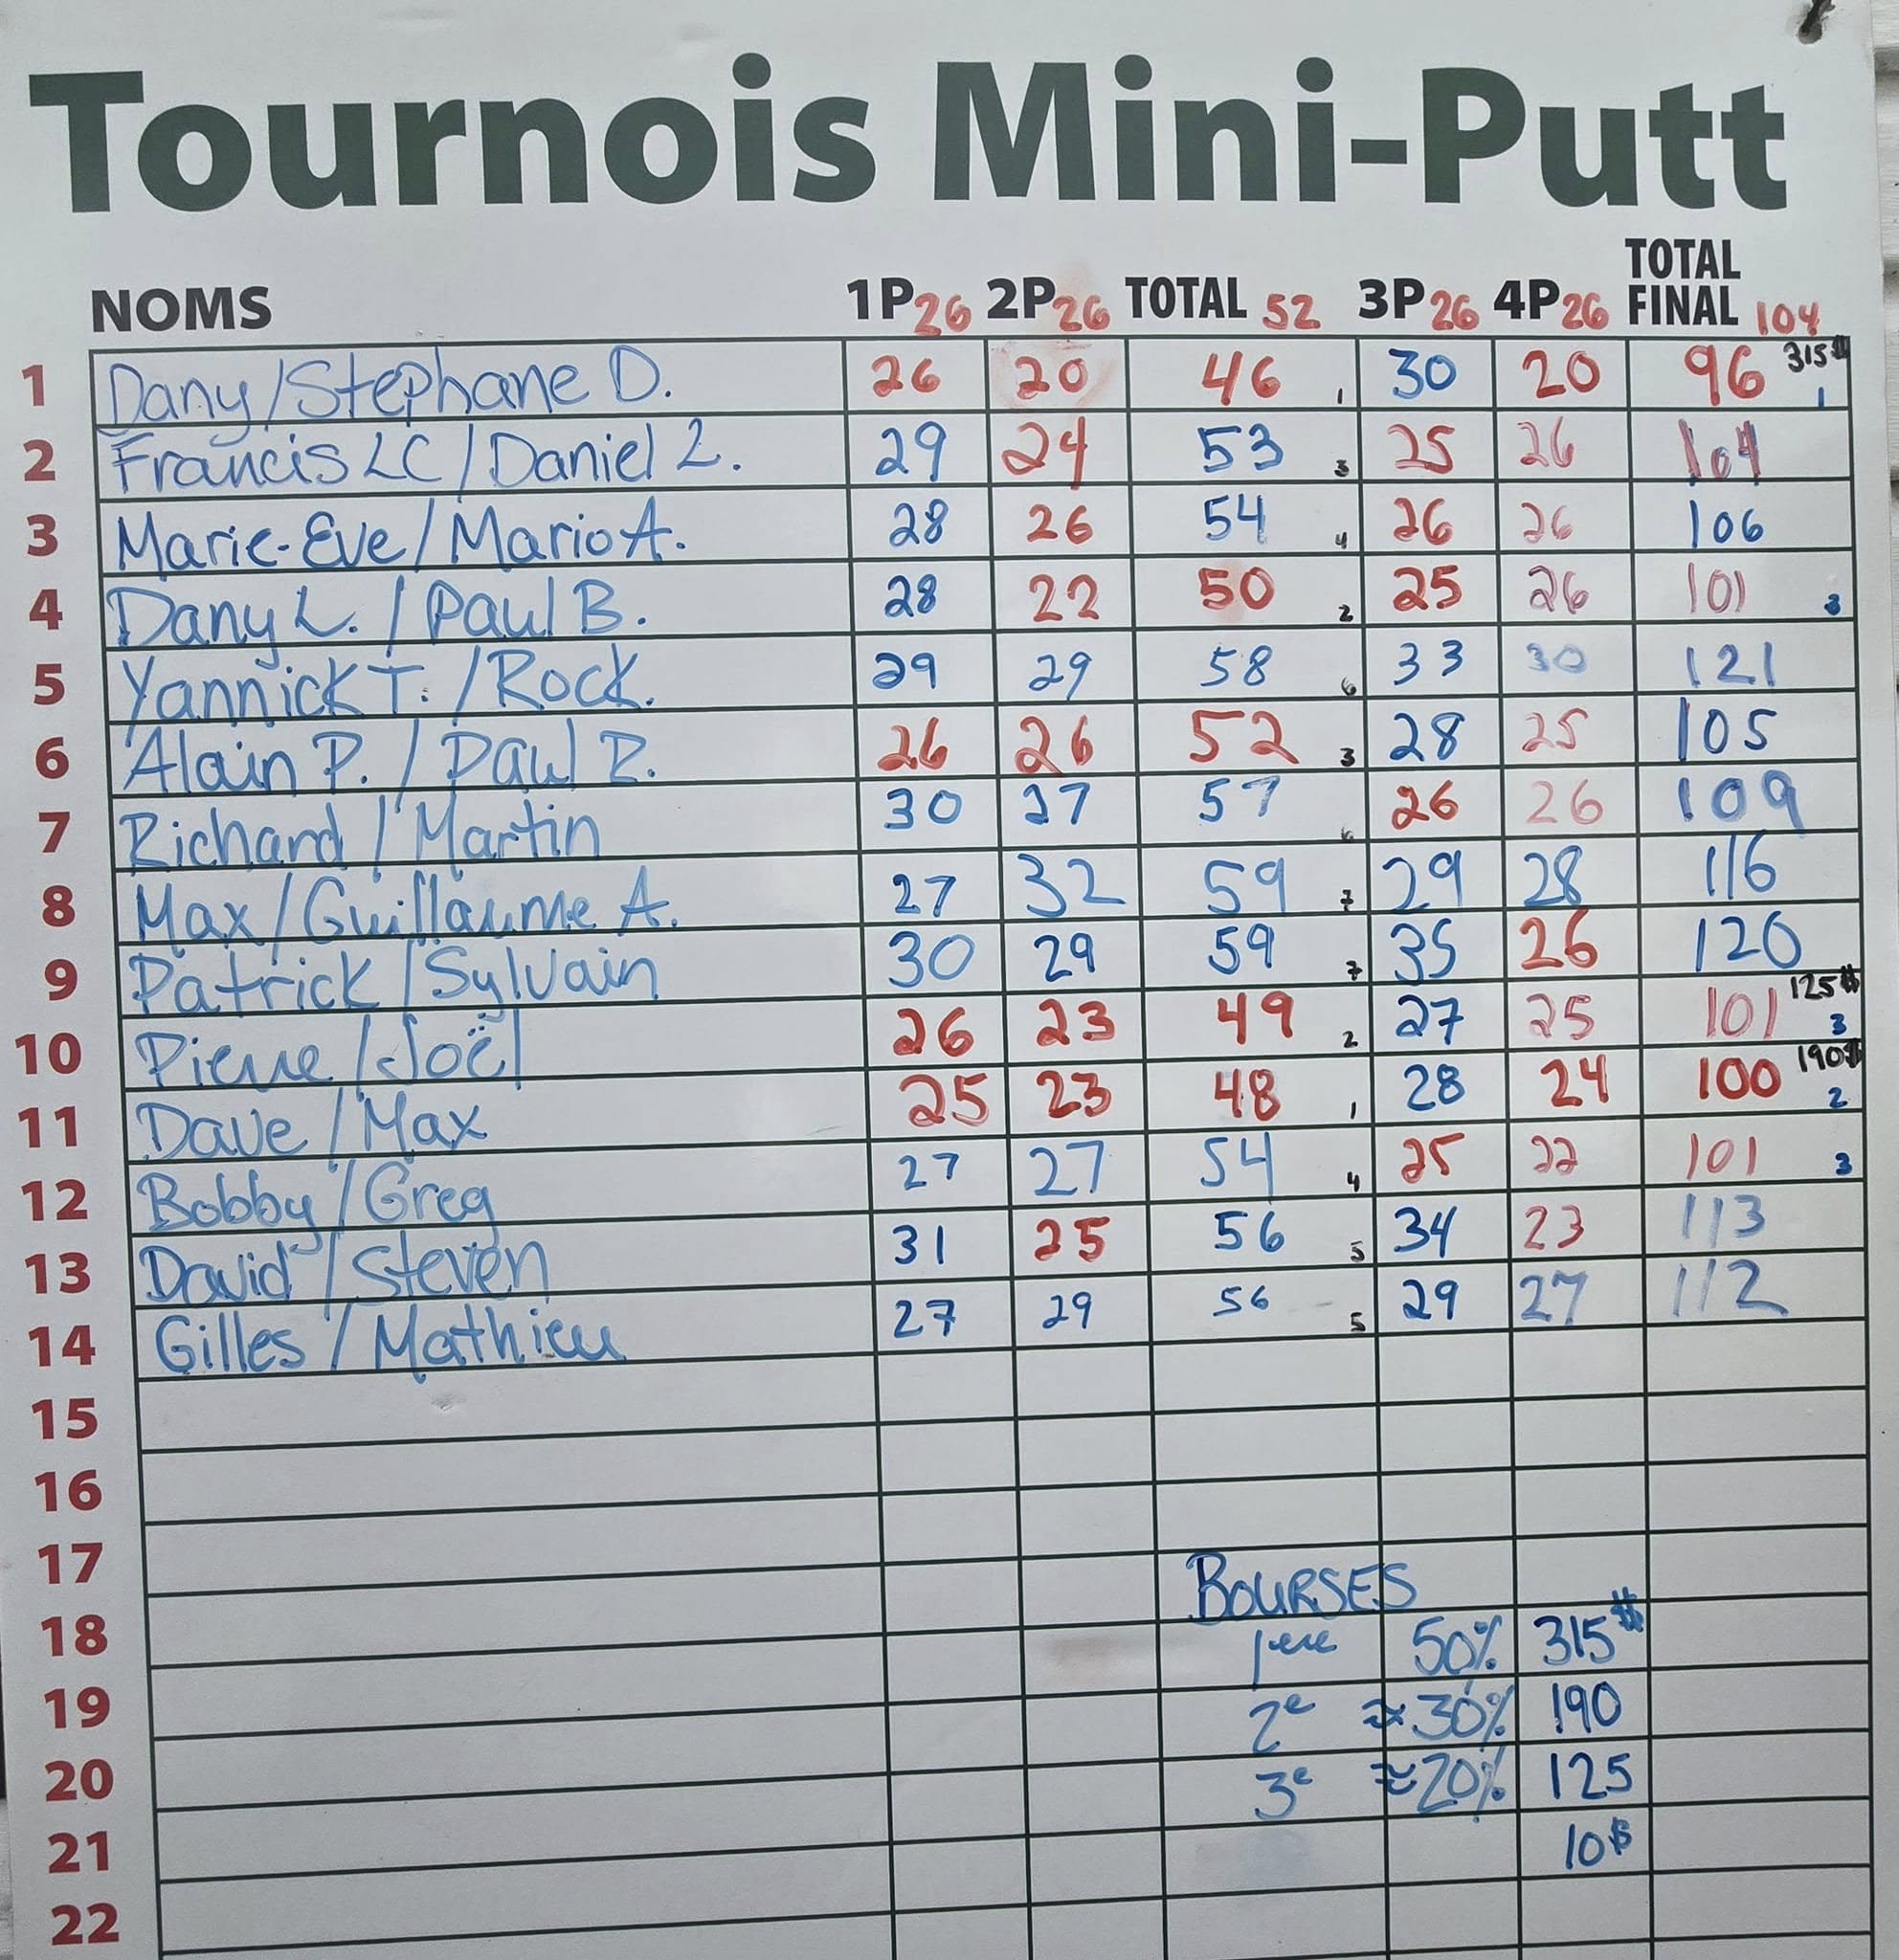 Tournois Mini-Putt
NOMS 1P 26 2P 26 TOTAL 52 3P 26 4P 26 TOTAL FINAL 104
1 Dany/Stephane D. 26 20 46 1 30 20 96 315$ 1
2 Francis LC/Daniel L. 29 24 53 3 25 26 104
3 Marie-Eve/Mario A. 28 26 54 4 26 26 106
4 Dany L./Paul B. 28 22 50 2 25 26 101 3
5 Yannick T./Rock. 29 29 58 6 33 30 121
6 Alain P./Paul R. 26 26 52 3 28 25 105
7 Richard/Martin 30 27 57 6 26 26 109
8 Max/Guillaume A. 27 32 59 7 29 28 116
9 Patrick/Sylvain 30 29 59 7 35 26 120
10 Pierre/Joël 26 23 49 2 27 25 101 125$ 3
11 Dave/Max 25 23 48 1 28 24 100 190$ 2
12 Bobby/Greg 27 27 54 4 25 22 101 3
13 David/Steven 31 25 56 5 34 23 113
14 Gilles/Mathieu 27 29 56 5 29 27 112
15
16
17 BOURSES
18 1ere 50% 315$
19 2e ≈30% 190
20 3e ≈20% 125
21 10$
22